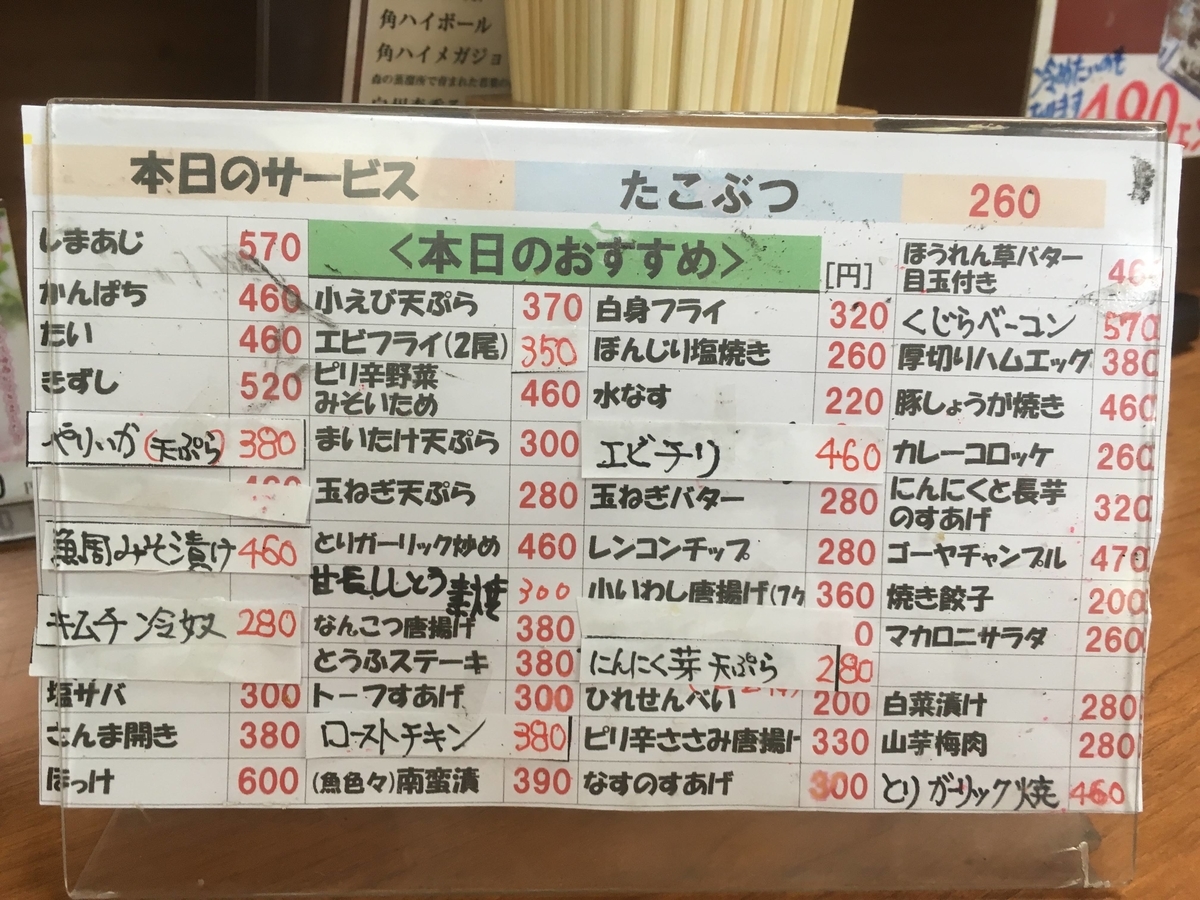 角ハイボール
角ハイメガジョ
冷めたいのも
480
本日のサービス たこぶつ 260
しまあじ 570
かんぱち 460
たい 460
きずし 520
やりいか(天ぷら) 380
魚周みそ漬け 460
キムチ冷奴 280
塩サバ 300
さんま開き 380
ほっけ 600
<本日のおすすめ>
[円]
小えび天ぷら 370
エビフライ(2尾) 350
ピリ辛野菜
みそいため 460
まいたけ天ぷら 300
玉ねぎ天ぷら 280
とりガーリック炒め 460
甘長ししとう素焼 300
なんこつ唐揚げ 380
とうふステーキ 380
トーフすあげ 300
ローストチキン 380
(魚色々)南蛮漬 390
白身フライ 320
ぼんじり塩焼き 260
水なす 220
エビチリ 460
玉ねぎバター 280
レンコンチップ 280
小いわし唐揚げ(7ケ 360
0
にんにく芽天ぷら 280
ひれせんべい 200
ピリ辛ささみ唐揚げ 330
なすのすあげ 300
ほうれん草バター
目玉付き 46
くじらベーコン 570
厚切りハムエッグ 380
豚しょうが焼き 460
カレーコロッケ 260
にんにくと長芋
のすあげ 320
ゴーヤチャンプル 470
焼き餃子 200
マカロニサラダ 260
白菜漬け 280
山芋梅肉 280
とりガーリック焼 460